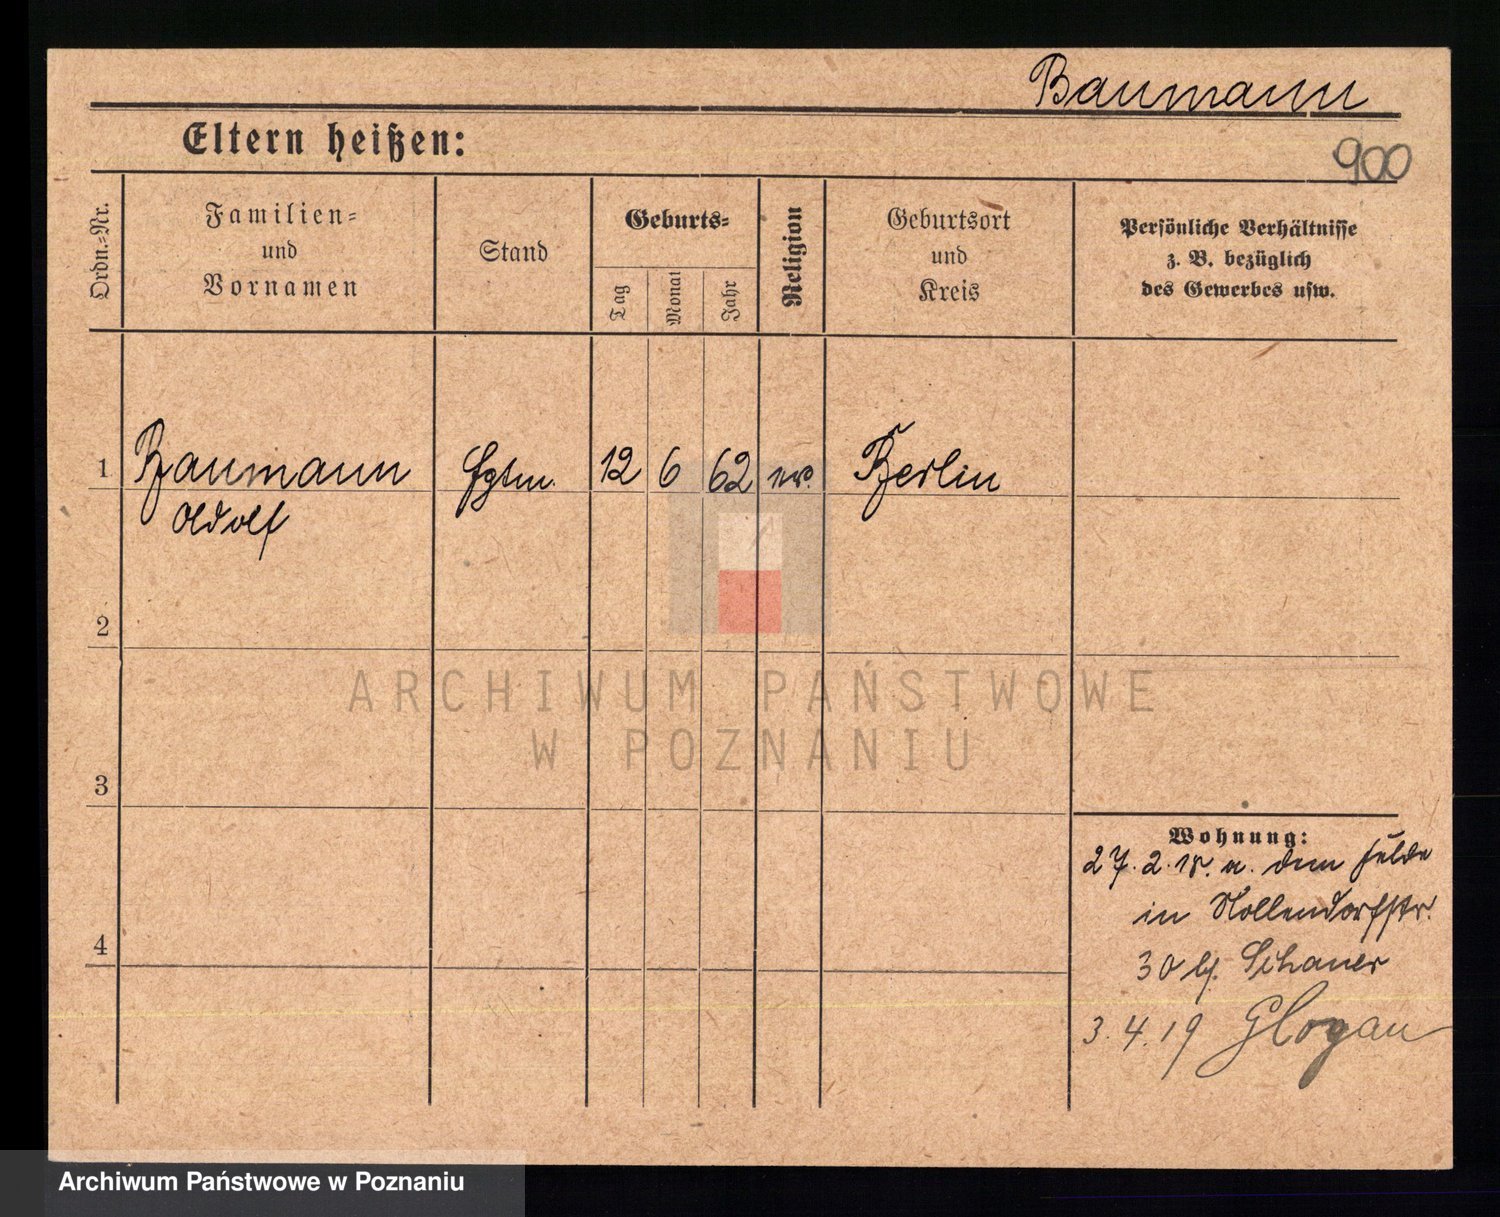 Baumann
Eltern heißen:
900
Ordn.-Nr.
Familien-
und
Vornamen
Stand
Geburts-
Tag
Monat
Jahr
Religion
Geburtsort
und
Kreis
Persönliche Verhältnisse
z. B. bezüglich
des Gewerbes usw.
1 Baumann 12 6 62 Berlin
Adolf
2
ARCHIWUM PAŃSTWOWE
W POZNANIU
3
Wohnung:
27. 2. 18. a. dem Felde
in Nollendorfstr.
30 b/. Schauer
4
3. 4. 19 Glogau
Archiwum Państwowe w Poznaniu